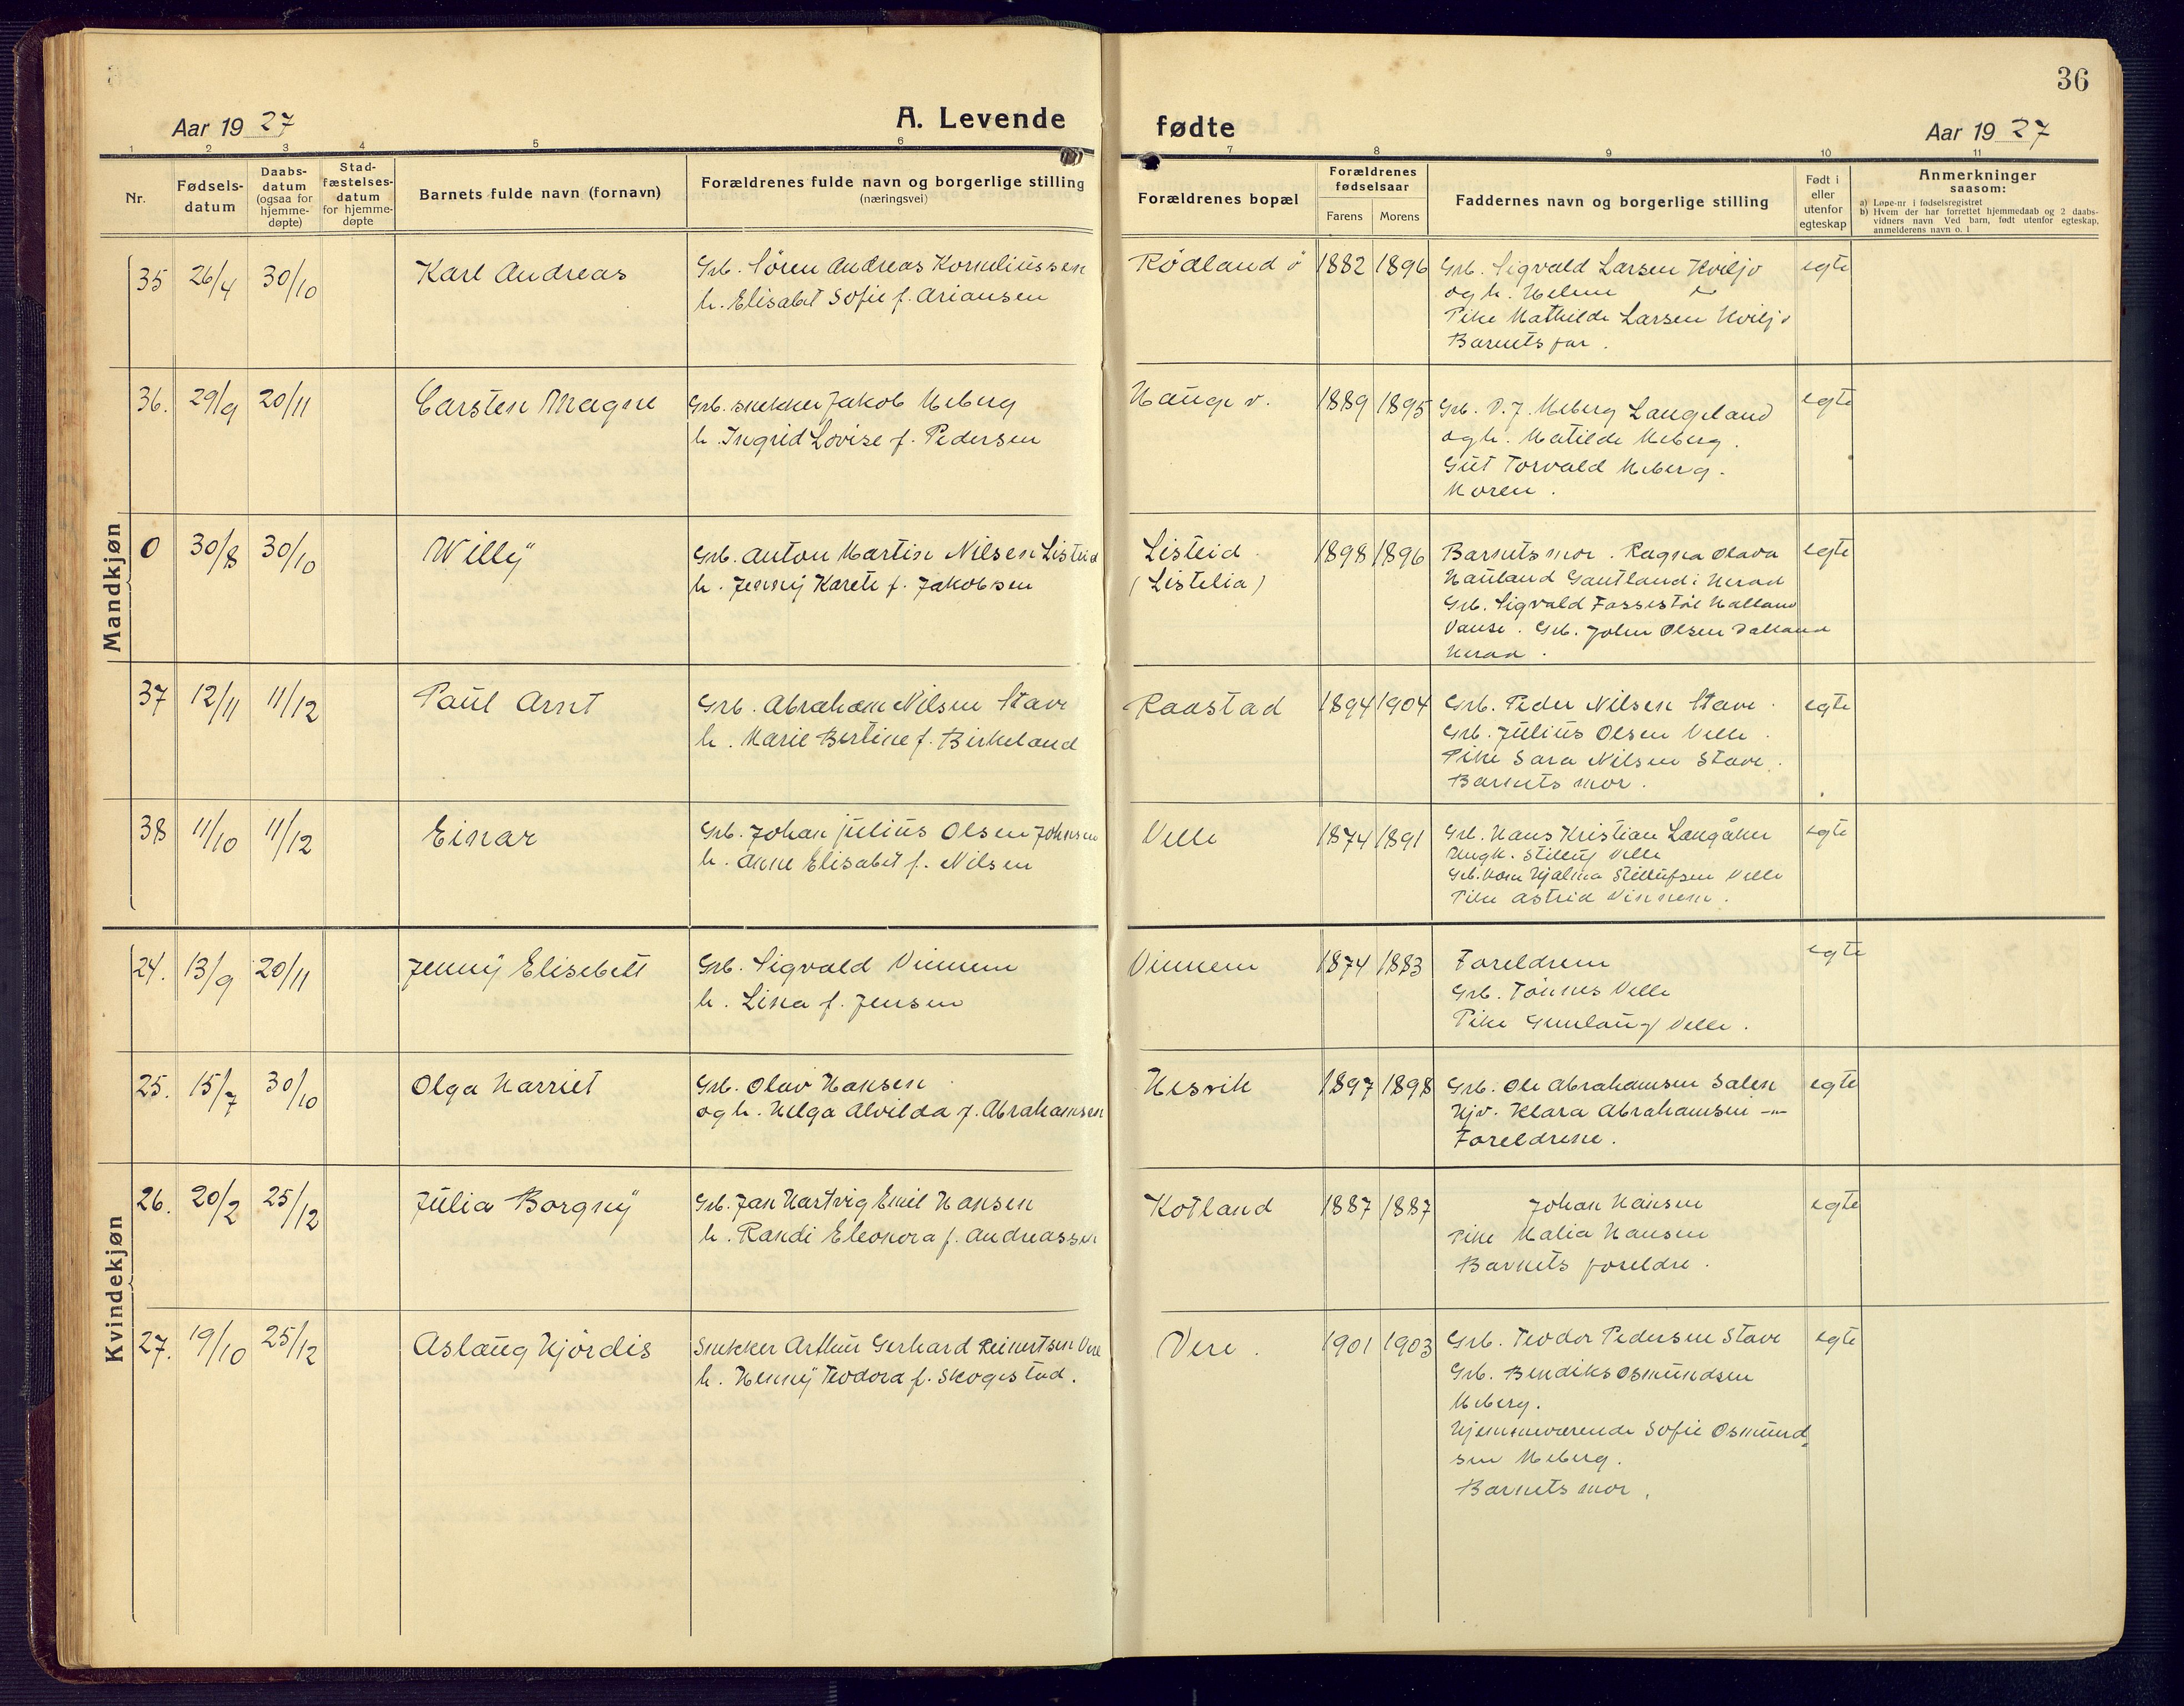 36
Aar 1927
A. Levende
fødte
Aar 1927
1 2 3 4 5 6 7 8 9 10 11
Nr.
Fødsels-
datum
Daabs-
datum
(ogsaa for
hjemme-
døpte)
Stad-
fæstelses-
datum
for hjemme-
døpte
Barnets fulde navn (fornavn)
Forældrenes fulde navn og borgerlige stilling
(næringsvei)
Forældrenes bopæl
Forældrenes
fødselsaar
Farens Morens
Faddernes navn og borgerlige stilling
Født i
eller
utenfor
egteskap
Anmerkninger
saasom:
a) Løpe-nr i fødselsregistret
b) Hvem der har forrettet hjemmedaab og 2 daabs-
vidners navn Ved barn, født utenfor egteskap,
anmelderens navn o. l
Mandkjøn
35 26/4 30/10 Karl Andreas
Grb. Søren Andreas Korneliussen
h. Elisabet Sofie f. Ariansen
Rødland ø 1882 1896
Grb. Sigvald Larsen Kviljo
og h. Helene
Pike Mathilde Larsen Kviljo
Barnets far.
egte
36. 29/9 20/11 Carsten Magne
Grb. snekker Jakob Meberg
h. Ingrid Lovise f. Pedersen
Hauge v. 1889 1895
Grb. D. J. Meberg Langeland
og h. Matilde Meberg.
Gut Torvald Meberg.
Moren.
egte
0 30/8 30/10 Willy
Grb. Anton Martin Nilsen Listeid
h. Jenny Karete f. Jakobsen
Listeid.
(Listelia)
1898 1896
Barnets mor. Ragna Olava
Hauland Gautland i Herad
Grb. Sigvald Fossestøl Halland
Vanse. Grb. John Olsen Dalland
Herad.
egte
37 12/11 11/12 Paul Arnt
Grb. Abraham Nilsen Stave
h. Marie Bertine f. Birkeland
Raastad 1894 1904
Grb. Peder Nilsen Stave.
Grb. Julius Olsen Velle.
Pike Sara Nilsen Stave.
Barnets mor.
egte
38 11/10 11/12 Einar
Grb. Johan Julius Olsen Johnsen
h. Anne Elisabet f. Nilsen
Velle 1874 1891
Grb. Hans Kristian Langåker
Ungk. Stilluf Velle
Grb. kone Hjalma Stillufsen Velle
Pike Astrid Vinnem.
egte
Kvindekjøn
24. 13/9 20/11 Jenny Elisebett
Grb. Sigvald Vinnem
h. Lina f. Jensen
Vinnem 1874 1883
Foreldrene
Grb. Tønnes Velle
Pike Gunlaug Velle.
egte
25. 15/7 30/10 Olga Harriet
Grb. Olav Hansen
og h. Helga Alvilda f. Abrahamsen
Hesvik 1897 1898
Grb. Ole Abrahamsen Salen
Hjv. Klara Abrahamsen -"-
Foreldrene.
egte
26. 20/2 25/12 Julia Borgny
Grb. Jan Hartvig Emil Hansen
h. Randi Eleonora f. Andreassen
Kotland 1887 1887
Johan Hansen
Pike Malia Hansen
Barnets foreldre.
egte
27. 19/10 25/12 Aslaug Hjørdis
Snekker Arthur Gerhard Reinertsen Vere
h. Henny Teodora f. Skogestad.
Vere. 1901 1903
Grb. Teodor Pedersen Stave
Grb. Bendiks Osmundsen
Meberg.
Hjemmeværende Sofie Osmund-
sen Meberg.
Barnets mor.
egte